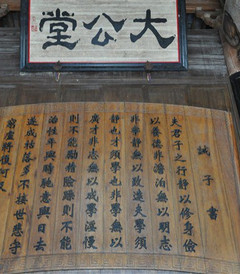 大公堂
誡子書
夫君子之行靜以修身儉
以養德非澹泊無以明志
非寧靜無以致遠夫學須
靜也才須學也非學無以
廣才非志無以成學滛慢
則不能勵精險躁則不能
治性年與時馳意與日去
遂成枯落多不接世悲守
窮廬將復何及